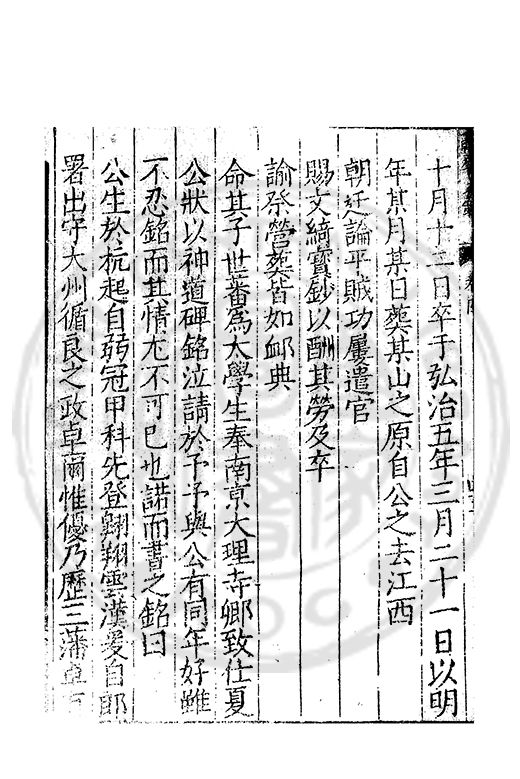 十月十二日卒于弘治五年三月二十一日以明
年某月某日葬某山之原自公之去江西
朝廷論平賊功屢遣官
賜文綺寳鈔以酬其勞及卒
諭祭營葬皆如䘏典
命其子世蕃為太學生奉南京大理寺卿致仕夏
公狀以神道碑銘泣請於予予與公有同年好雖
不忍銘而其情尤不可已也諾而書之銘曰
公生於杭起自弱冠甲科先登翺翔雲漢爰自郎
署出守大州循良之政卓爾惟優乃歷三藩卓